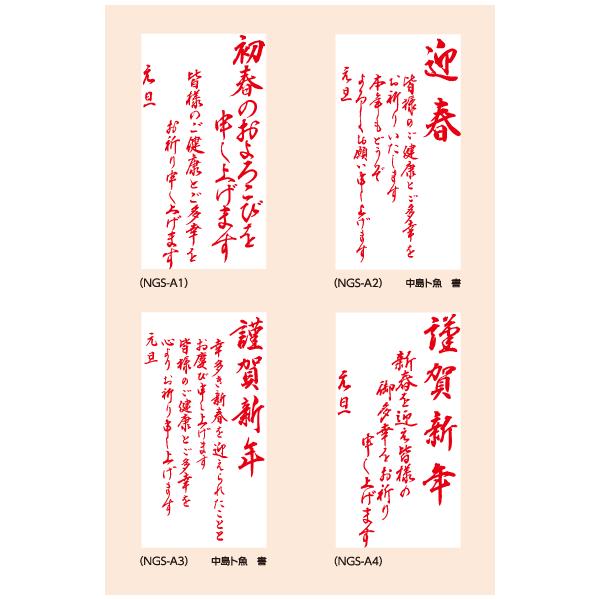 初春のおよろこびを
申し上げます
皆様のご健康とご多幸を
お祈り申し上げます
元旦
(NGS-A1)
迎春
皆様のご健康とご多幸を
お祈りいたします
本年もどうぞ
よろしくお願い申し上げます
元旦
(NGS-A2) 中島ト魚 書
謹賀新年
幸多き新春を迎えられたことと
お慶び申し上げます
皆様のご健康とご多幸を
心よりお祈り申し上げます
元旦
(NGS-A3) 中島ト魚 書
謹賀新年
新春を迎え皆様の
御多幸をお祈り
申し上げます
元旦
(NGS-A4)